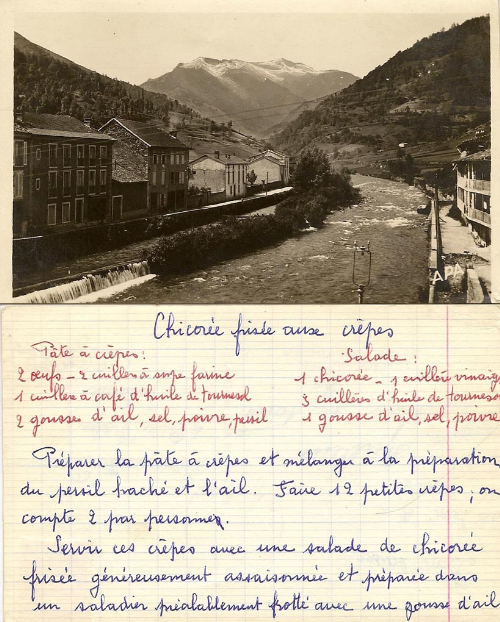 APA
Chicorée frisée aux crêpes
Pâte à crêpes:
2 œufs - 2 cuillers à soupe farine
1 cuiller à café d'huile de tournesol
2 gousses d'ail, sel, poivre, persil
Salade :
1 chicorée - 1 cuillère vinaig
3 cuillères d'huile de tourneso
1 gousse d'ail, sel, poivre
Préparer la pâte à crêpes et mélanger à la préparation
du persil haché et l'ail. Faire 12 petites crêpes, on
compte 2 par personnes.
Servir ces crêpes avec une salade de chicorée
frisée généreusement assaisonnée et préparée dans
un saladier préalablement frotté avec une gousse d'ail